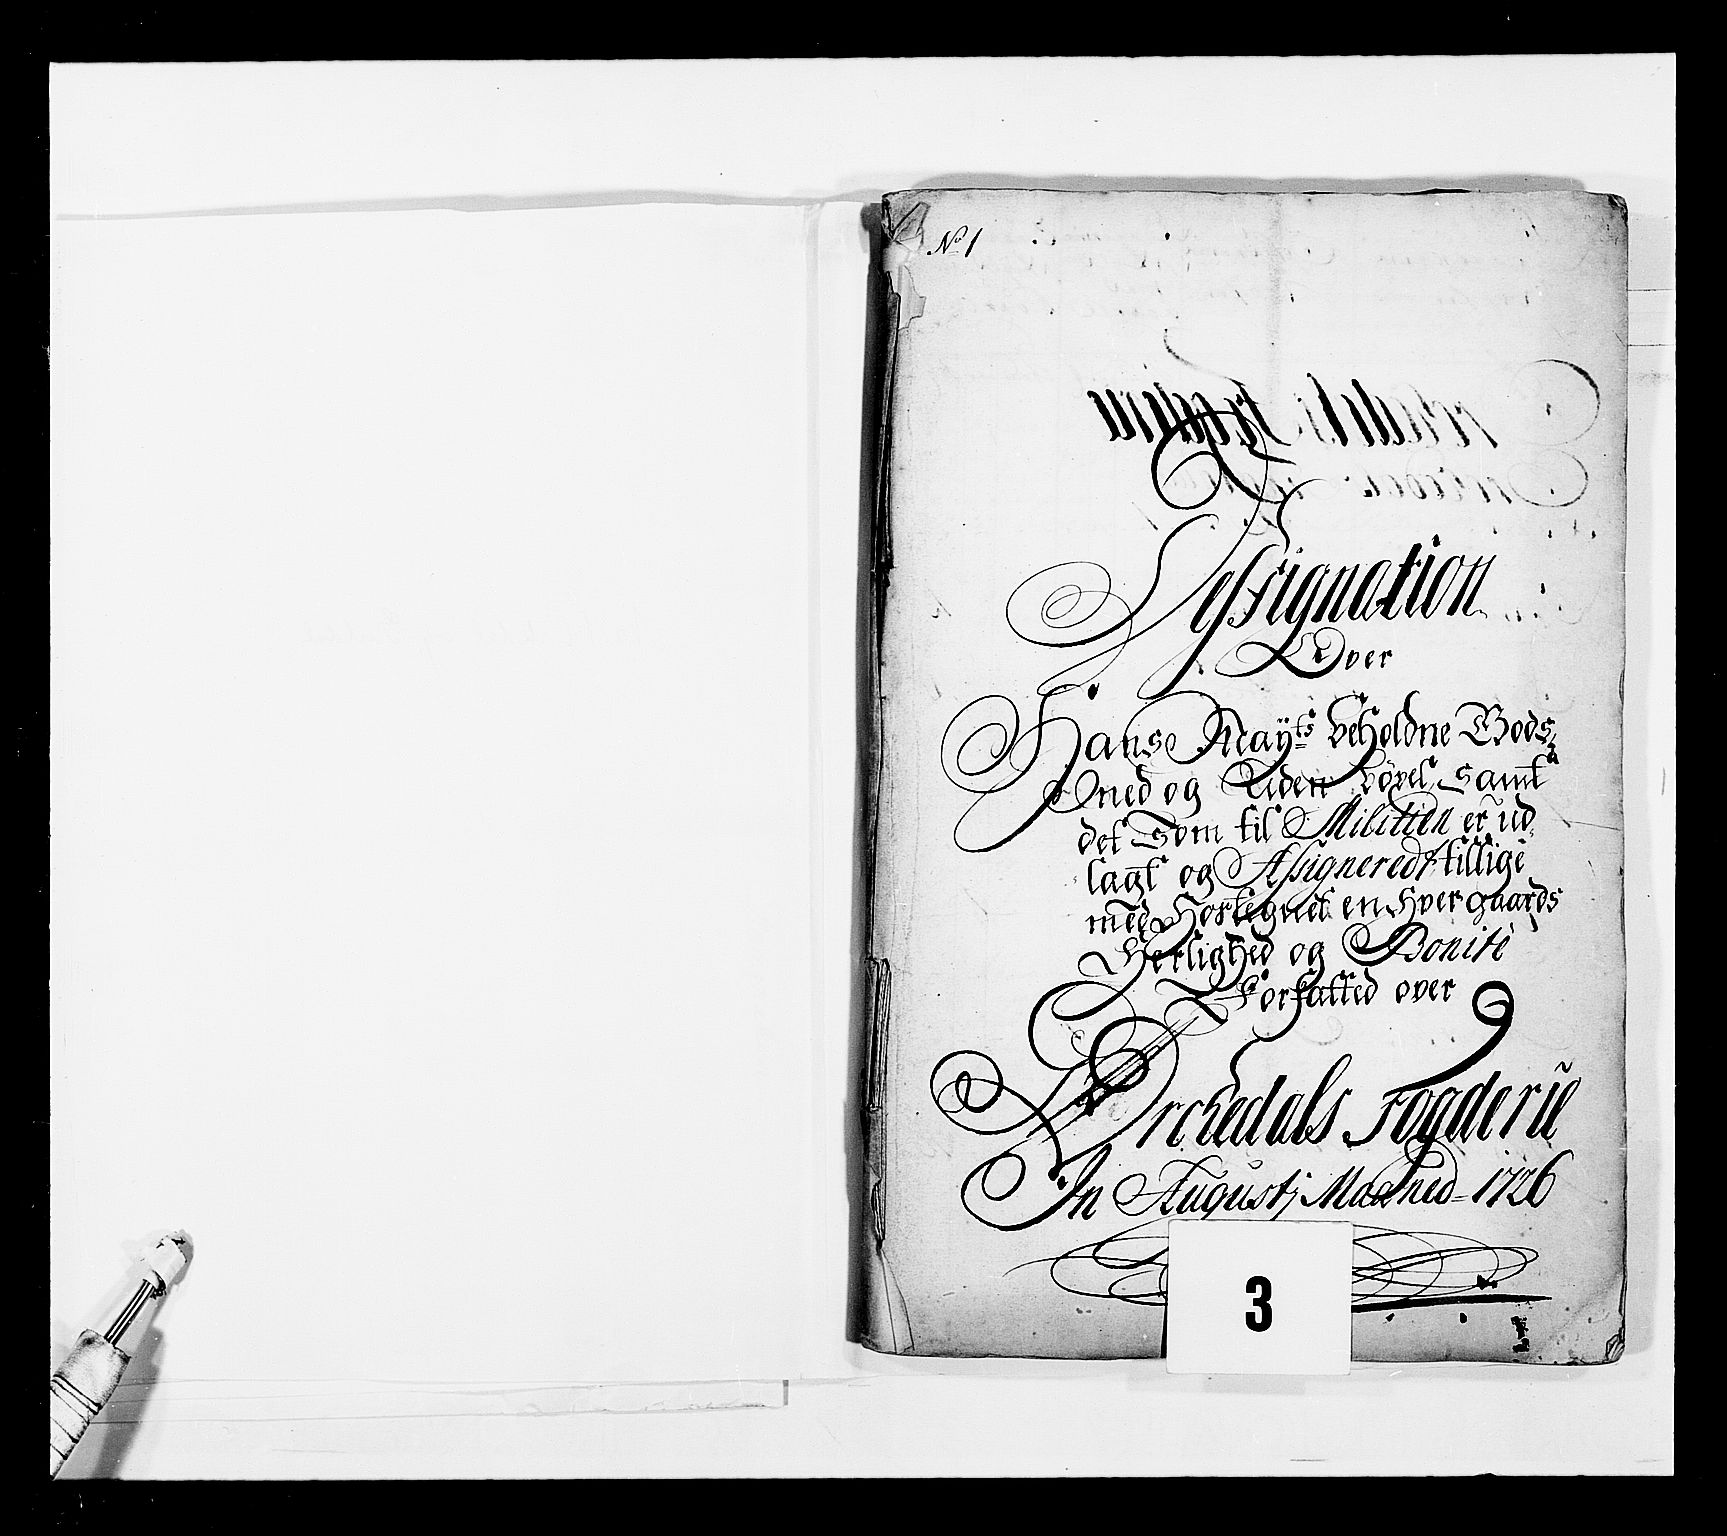 No 1
Dessignation
Over
Hans Mayts beholdne Gods,
Med og Uden bøxel, samt
det som til Militien er ud,
lagt og Assigneredt tillige
med Fortegnelse en hver gaards
Herlighed og Bonite
Forfatted over
Orchedals Fogderie
In Augustj Maaned 1726
3